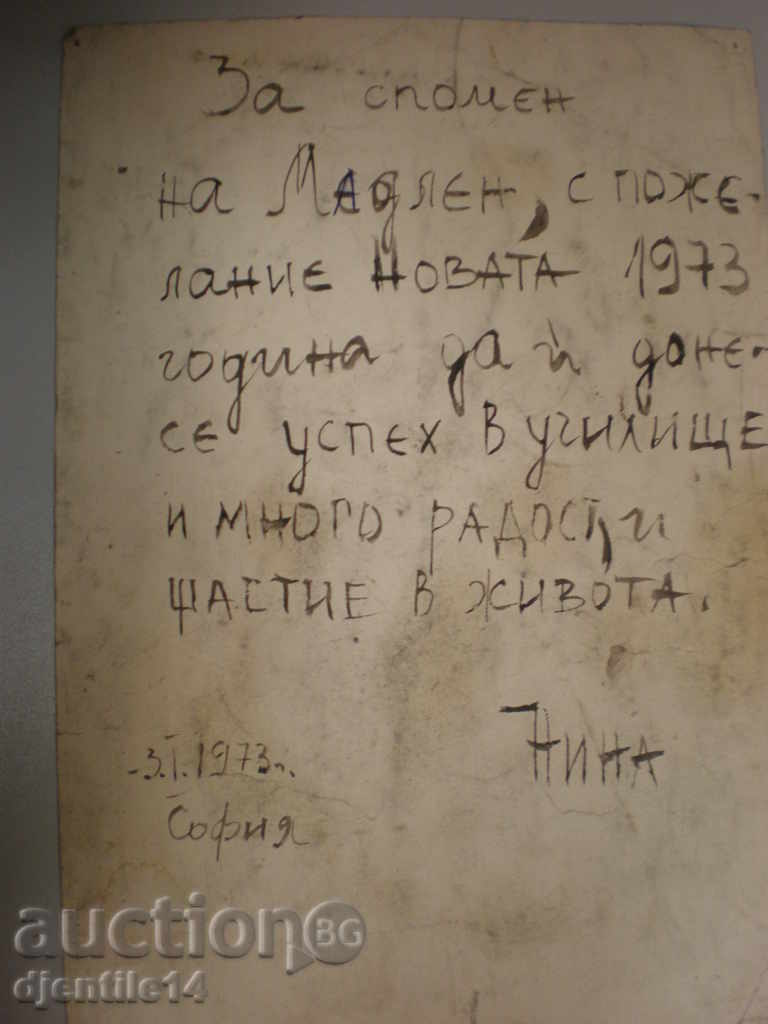 За спомен
на Мадлен, с поже-
лание новата 1973
година да ѝ доне-
се успех в училище
и много радост и
щастие в живота.
Нина
3.I.1973г.
София
auction BG
djentile14